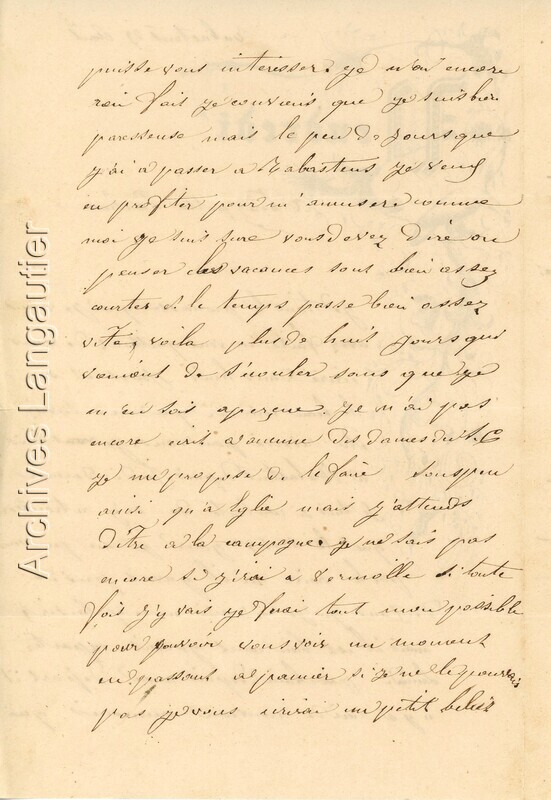 puisse vous interesser. je n'ai encore
rien fait je conviens que je suis bien
paresseuse mais le peu de jours que
j'ai a passer a Rabastens je veux
en profiter pour m'amuser comme
moi je suis sure vous devez dire ou
penser les vacances sont bien assez
courtes et le temps passe bien assez
vite, voila plus de huit jours qui
viennent de s'écouler sans que je
m'en sois aperçue. Je n'ai pas
encore écrit a aucune des dames du S. C
je me propose de le faire sous peu
ainsi qu'a mais j'attends
d'être a la campagne. je ne sais pas
encore si j'irai a si toute
fois j'y vais je ferai tout mon possible
pour pouvoir vous voir un moment
en passant a pamier si je ne le pouvais
pas je vous écrirai un petit
Archives Langautier